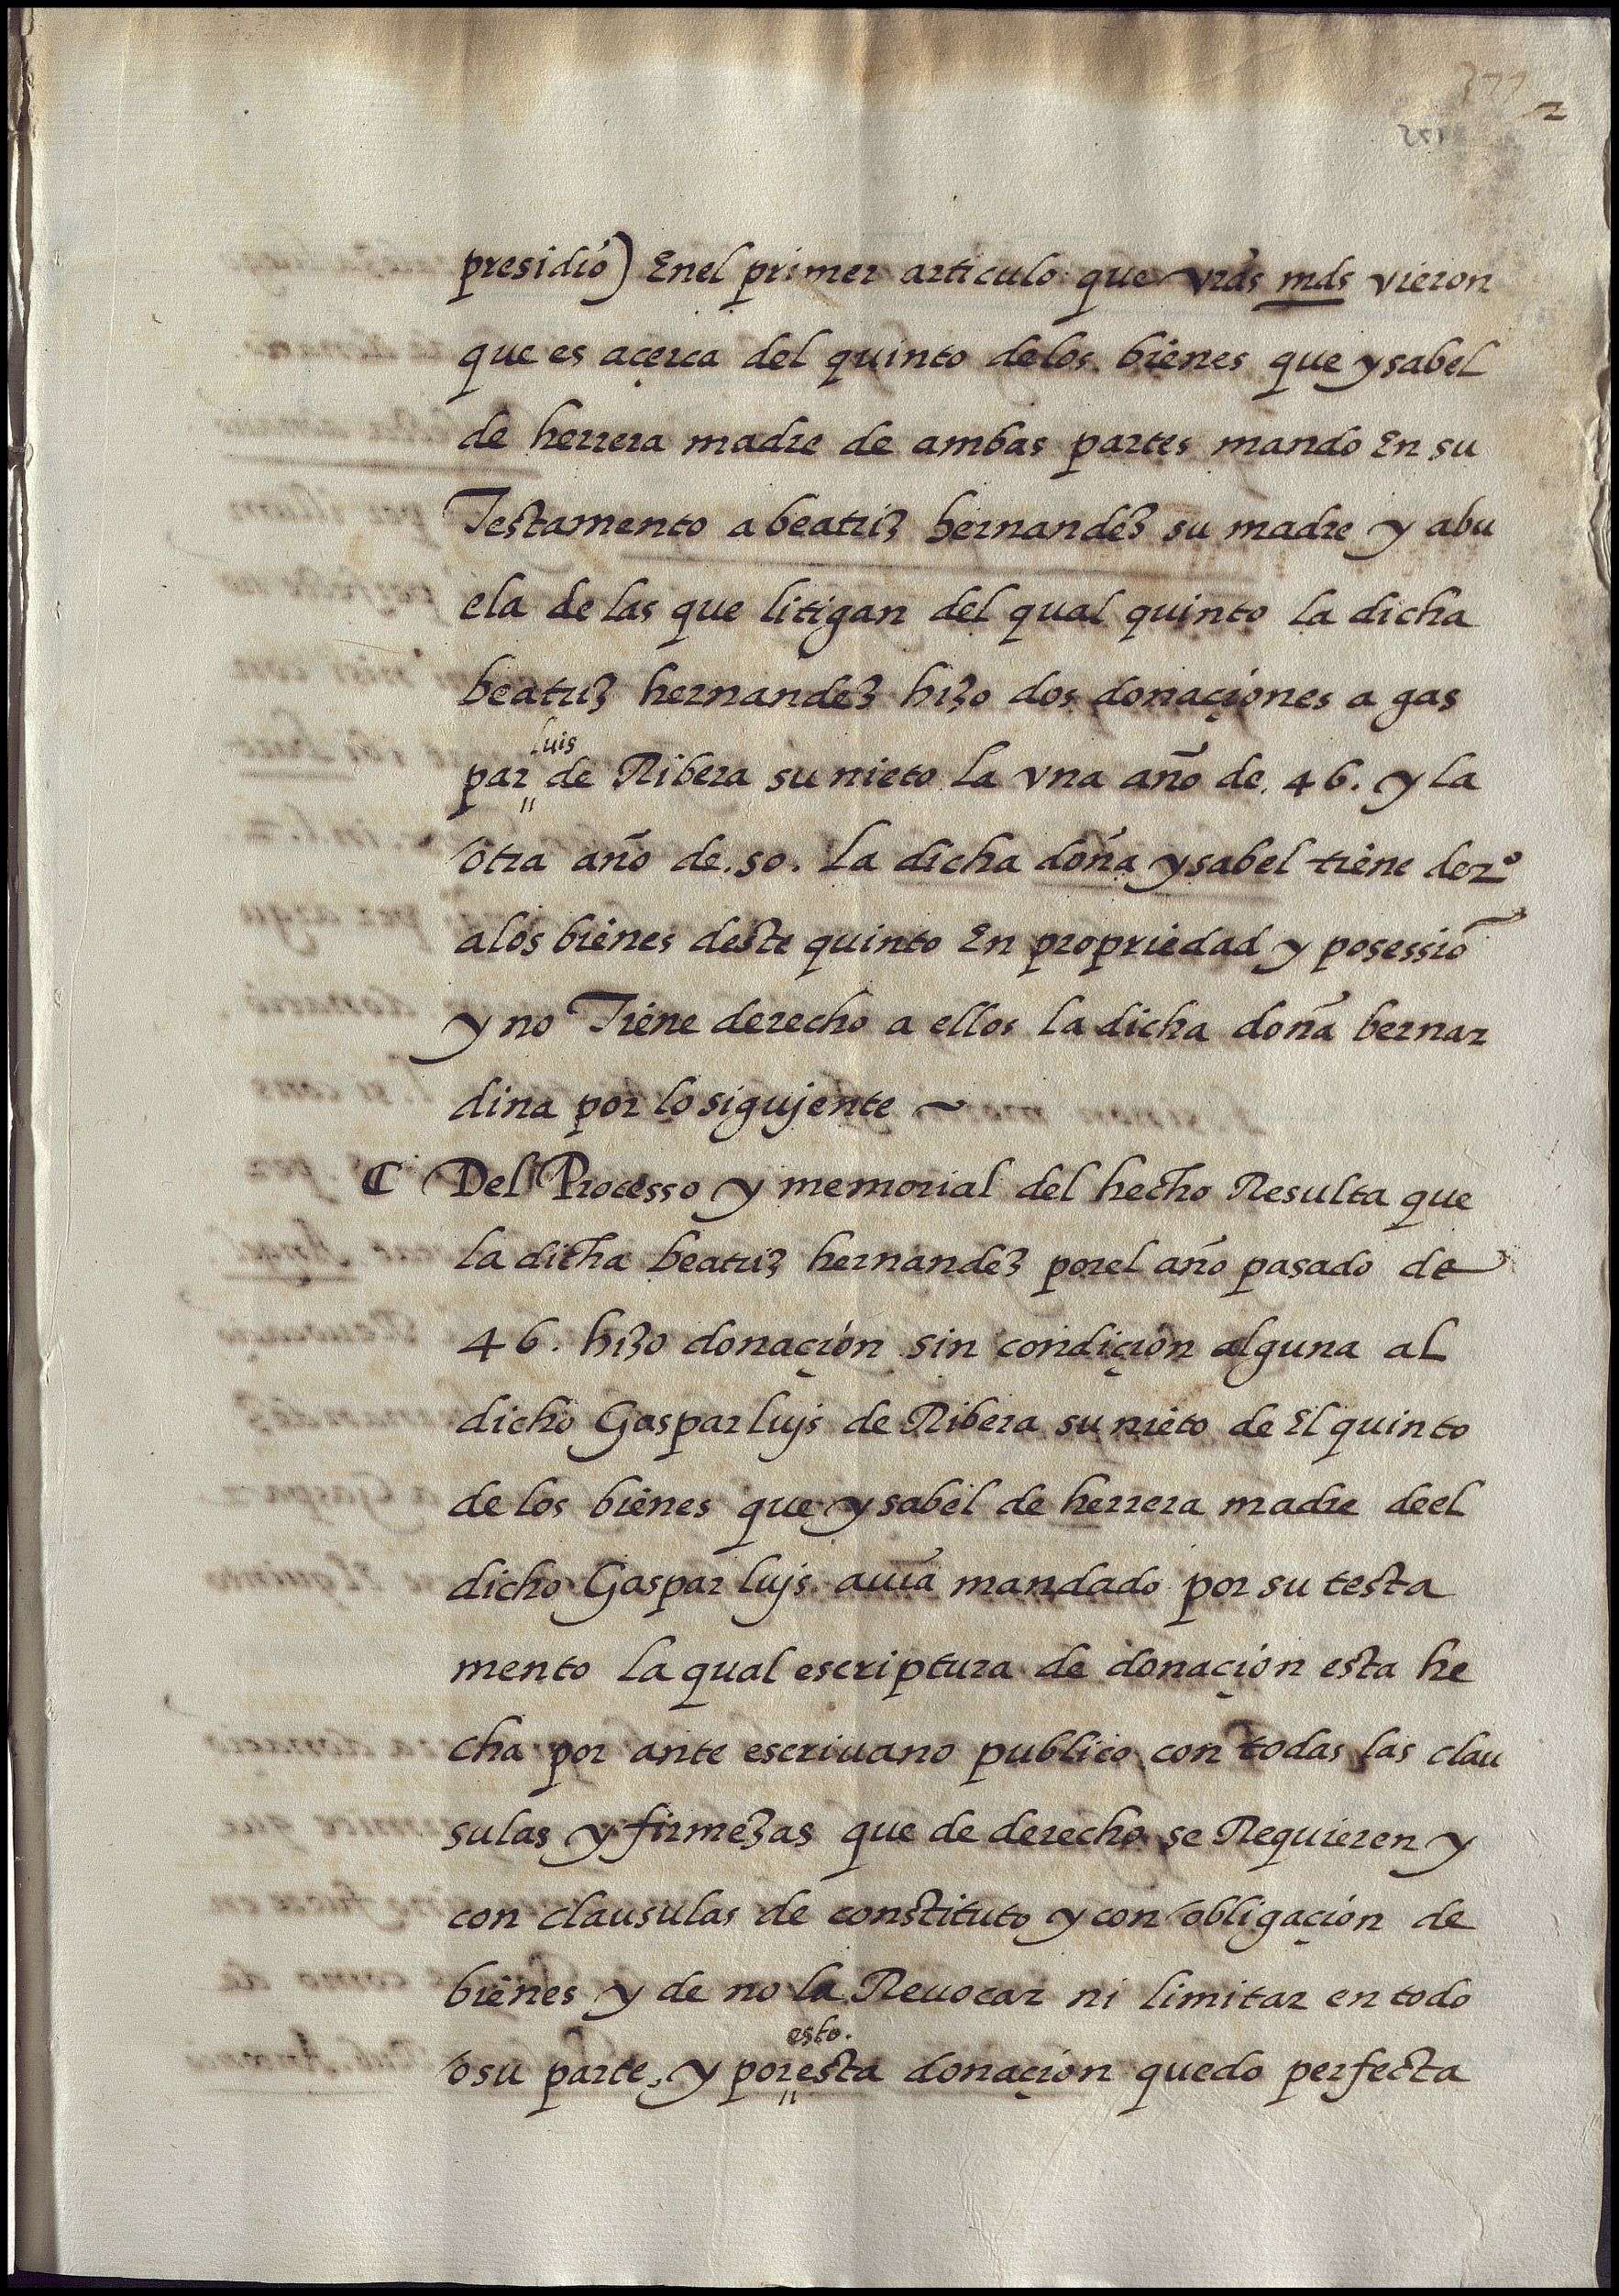 2
presidió) Enel primer articulo que vrãs mds vieron
que es açerca del quinto delos bienes que ysabel
de herrera madre de ambas partes mando En su
Testamento a beatriz hernandez su madre y abu
ela de las que litigan del qual quinto la dicha
beatriz hernandez hizo dos donaçiones a gas
luis
par de Ribera su nieto la vna año de. 46. y la
otra año de. 50. La dicha doña ysabel tiene derº
alos bienes deste quinto En propriedad y posessiõ
y no Tiene derecho a ellos la dicha doña bernar
dina por lo sigujente ~
C Del Processo y memorial del hecho Resulta que
la dicha beatriz hernandez porel año pasado de
46. hizo donaçion sin condiçion alguna al
dicho Gaspar lujs de Ribera su nieto de El quinto
de los bienes que ysabel de herrera madre deel
dicho Gaspar lujs auia mandado por su testa
mento la qual escriptura de donaçion esta he
cha por ante escriuano publico con todas las clau
sulas y firmezas que de derecho se Requieren y
con clausulas de constituto y con obligaçion de
bienes y de no la Reuocar ni limitar en todo
esto.
o su parte, y por esta donaçion quedo perfecta